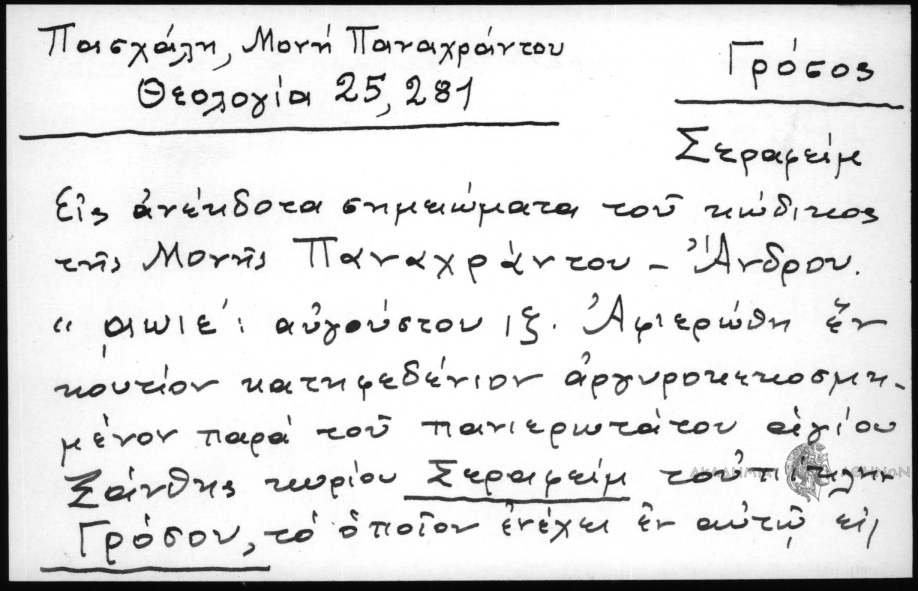 Πασχάλη, Μονή Παναχράντου
Θεολογία 25, 281
Γρόσος
Σεραφείμ
Εἰς ἀνέκδοτα σημειώματα τοῦ κώδικος
τῆς Μονῆς Παναχράντου - Ἄνδρου.
"͵αωιε´: αὐγούστου ιζ. Ἀφιερώθη ἕν
κουτίον κατηφεδένιον ἀργυροκεκοσμη-
μένον παρά τοῦ πανιερωτάτου ἁγίου
Ξάνθης κυρίου Σεραφείμ τοῦ
Γρόσου, τό ὁποῖον ἐνέχει ἐν αὐτῷ εἰς
ΑΚΑΔΗΜΙΑ ΑΘΗΝΩΝ